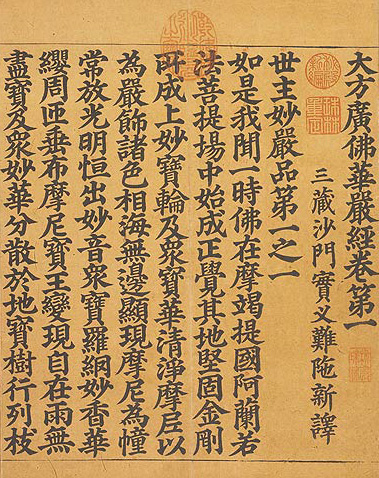 大方廣佛華嚴經卷第一
三藏沙門實叉難陁新譯
世主妙嚴品第一之一
如是我聞一時佛在摩竭提國阿蘭若
法菩提場中始成正覺其地堅固金剛
所成上妙寶輪及眾寶華清淨摩尼以
為嚴飾諸色相海無邊顯現摩尼為幢
常放光明恒出妙音眾寶羅網妙香華
纓周匝垂布摩尼寶王變現自在雨無
盡寶及眾妙華分散於地寶樹行列枝